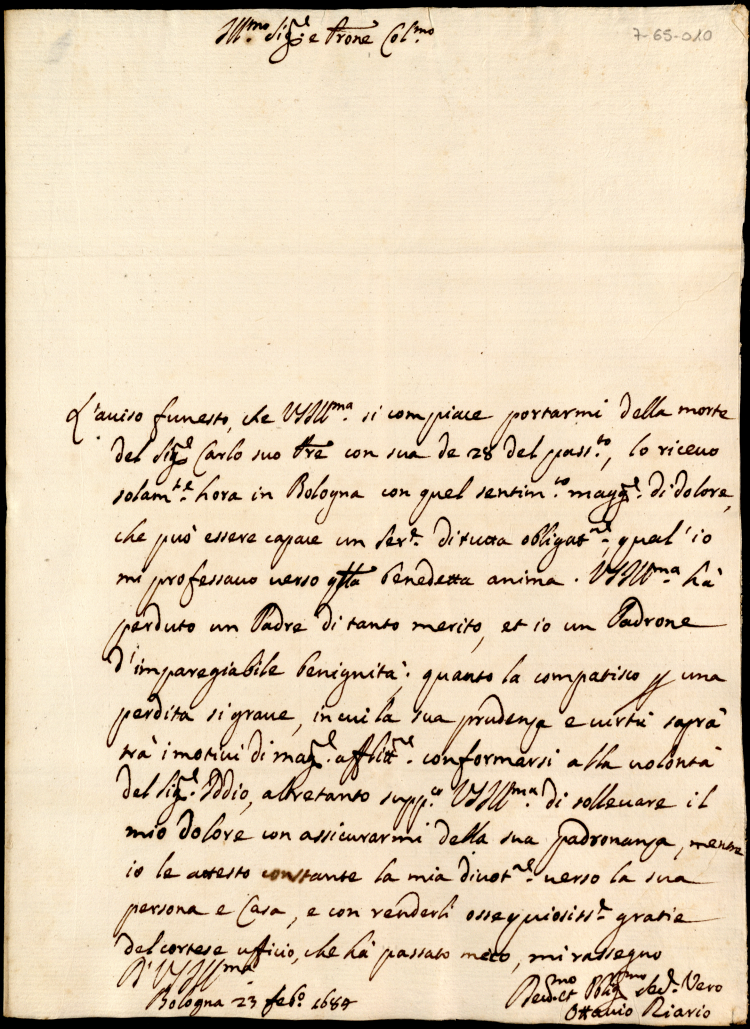 Ill.mo Sig.re e Prone Col.mo
7-65-010
L'auiso funesto, che VSIll.ma si compiace portarmi della morte
del Sig.re Carlo suo Pre con sua de 28 del pass.to, lo riceuo
solam.te hora in Bologna con quel sentim.to magg.re di dolore,
che può essere capace un Ser.re di tutta obligat.ne, qual'io
mi professauo uerso qlla benedetta anima. VSIll.ma hà
perduto un Padre di tanto merito, et io un Padrone
d'imparegiabile benignità; quanto la compatisco p una
perdita si graue, in cui la sua prudenza e uirtù saprà
trà i motiui di mag.re afflitt.ne conformarsi alla uolontà
del Sig.re Iddio, altretanto supp.co VSIll.ma di solleuare il
mio dolore con assicurarmi della sua padronanza, mentre
io le attesto constante la mia diuot.ne uerso la sua
persona e Casa, e con renderli ossequiosiss.e gratie
del cortese ufficio, che hà passato meco, mi rassegno
D' VSIll.ma
Bologna 23 feb.o 1684
Deu.mo et Oblig.mo Ser.re Vero
Ottauio Riario